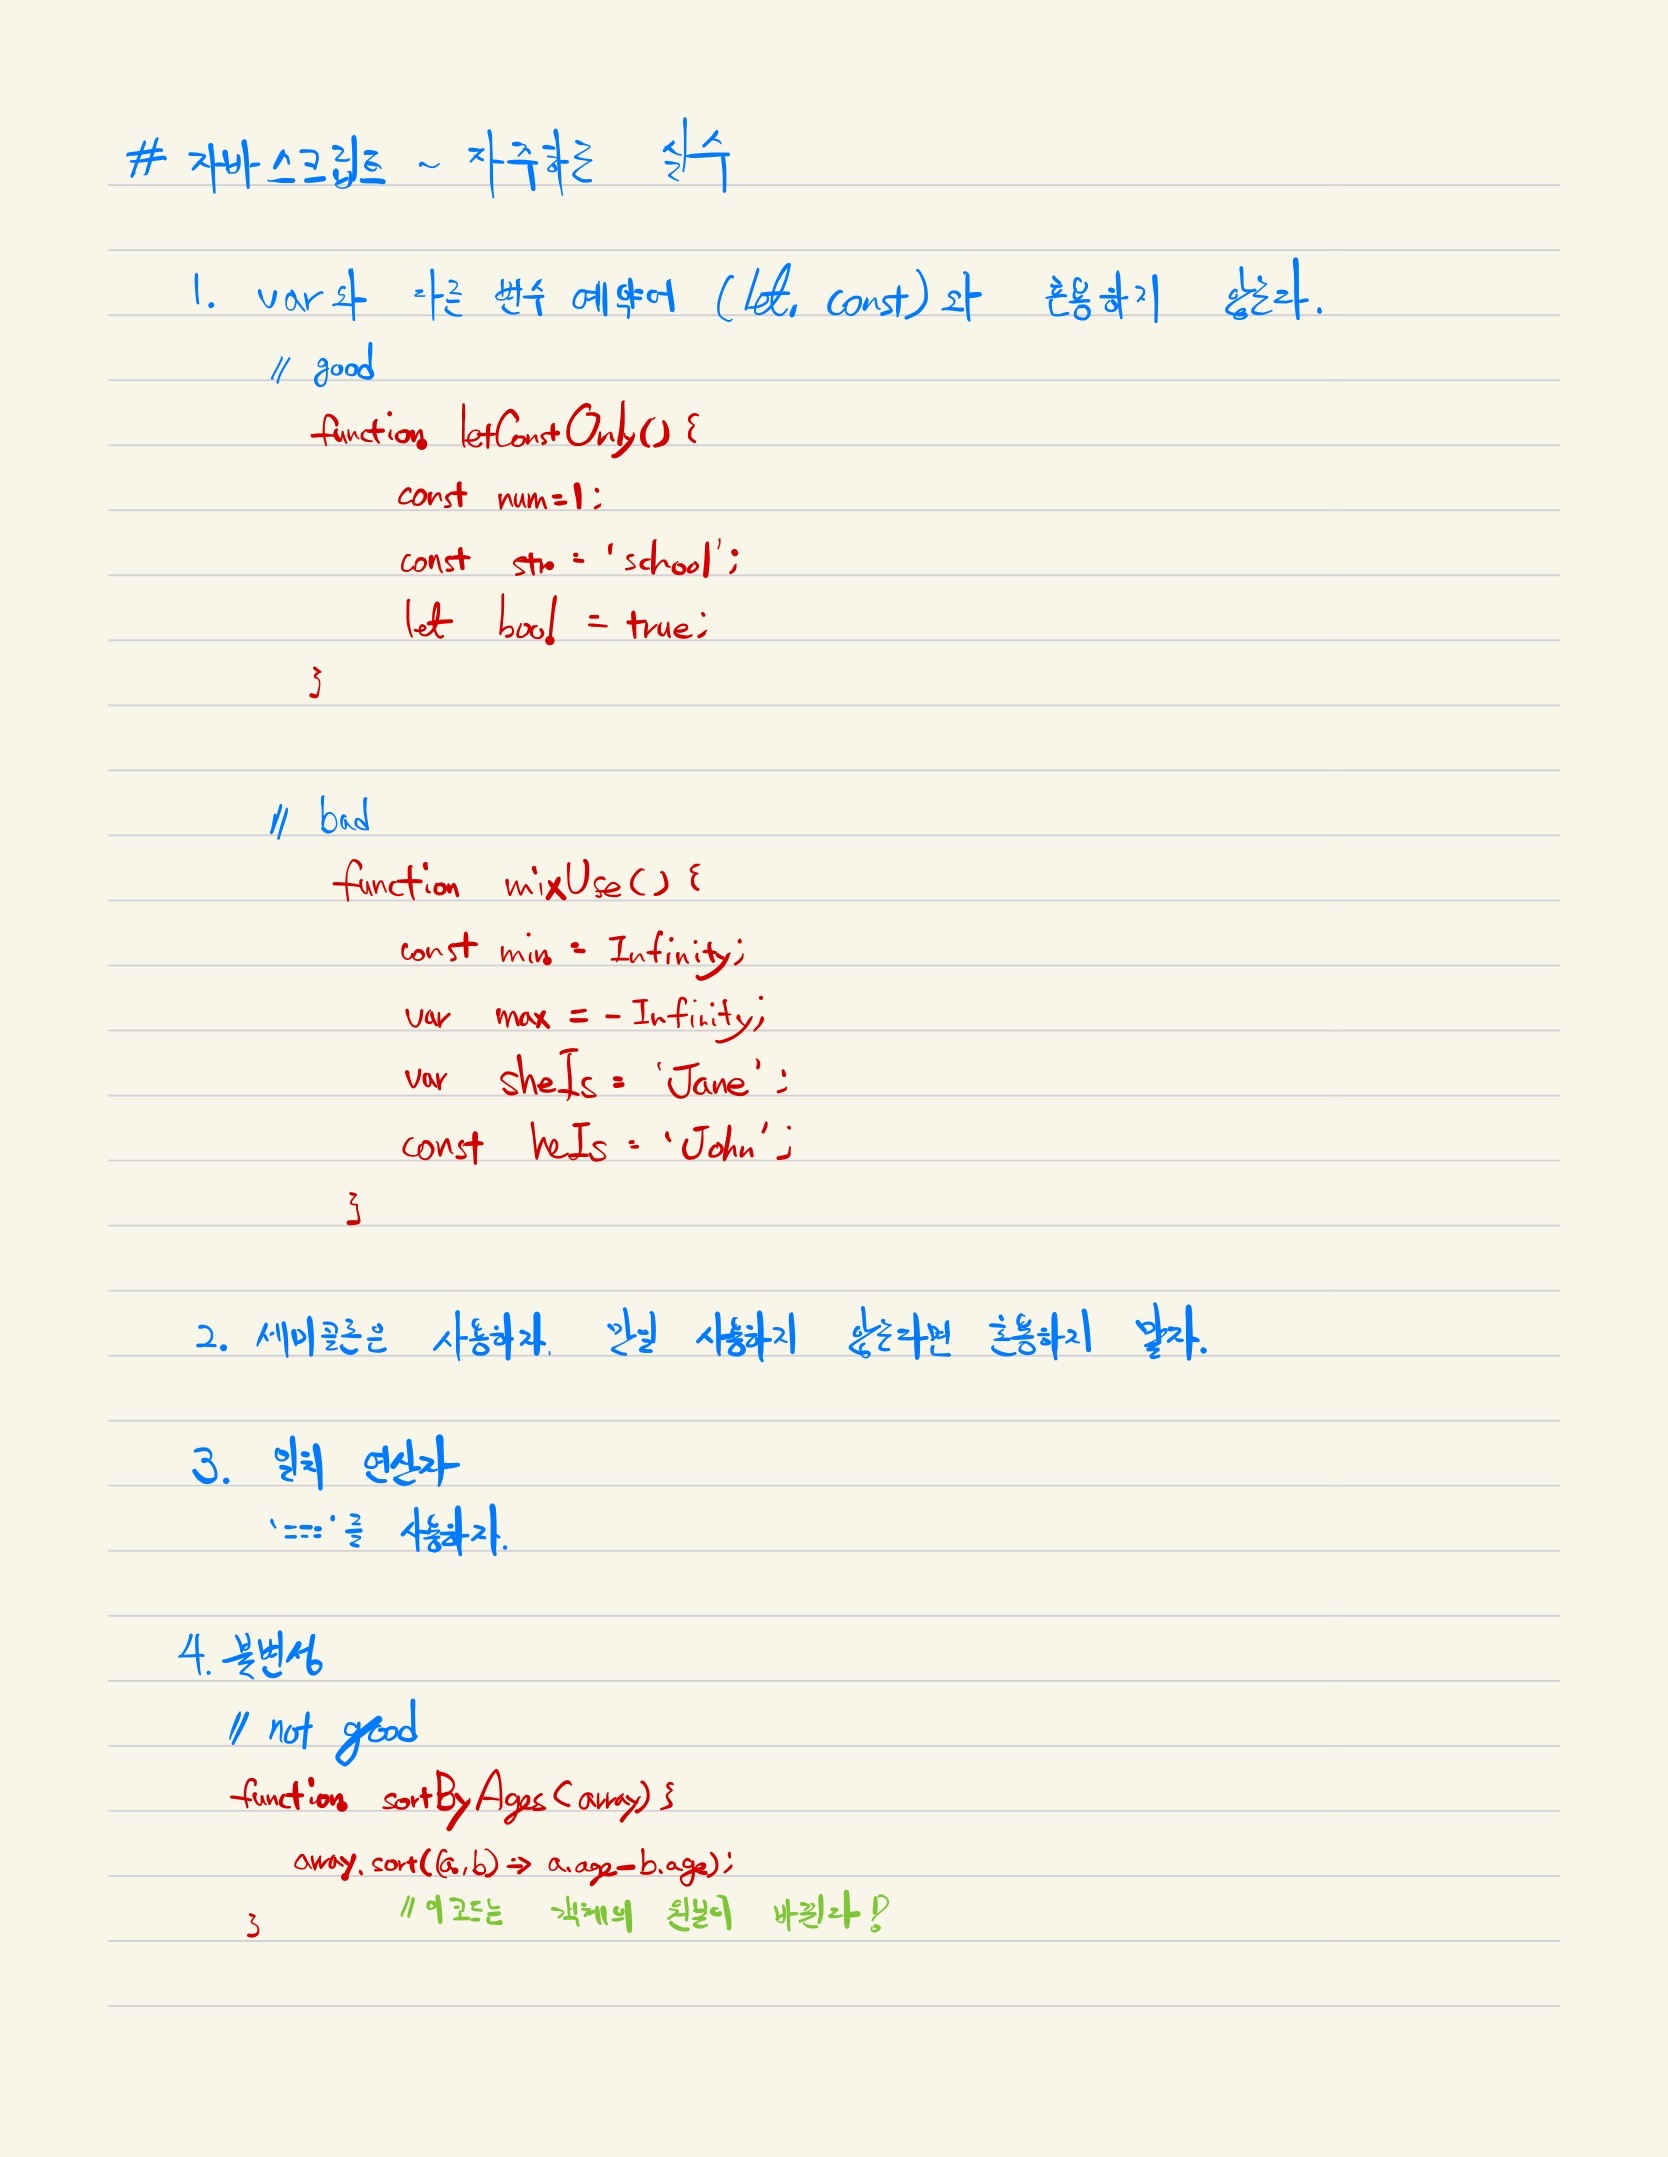 # 자바스크립트 ~ 자주하는 실수
1. var와 다른 변수 예약어 (let, const)와 혼용하기 않는다.
// good
function letConstOnly() {
const num=1;
const str = 'school';
let bool = true;
}
// bad
function mixUse() {
const min = Infinity;
var max = -Infinity;
var sheIs = 'Jane';
const heIs = 'John';
}
2. 세미콜론은 사용하자. 만일 사용하지 않는다면 혼용하지 말자.
3. 일치 연산자
'==='를 사용하자.
4. 불변성
// not good
function sortByAges(array) {
array.sort((a,b) => a.age-b.age);
// 이 코드는 객체의 원본이 바뀐다!
}